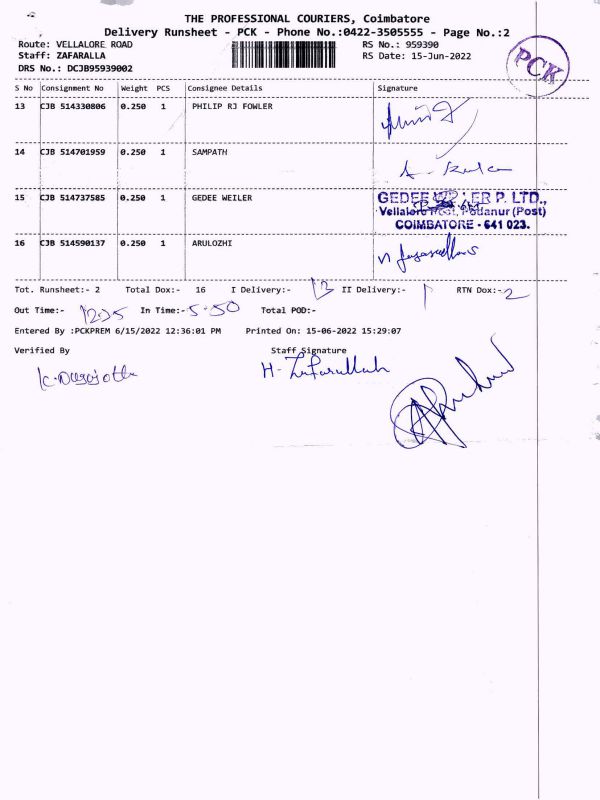 THE PROFESSIONAL COURIERS, Coimbatore
Delivery Runsheet - PCK - Phone No.:0422-3505555 - Page No.:2
Route: VELLALORE ROAD RS No.: 959390
Staff: ZAFARALLA RS Date: 15-Jun-2022
DRS No.: DCJB95939002
PCK
S No Consignment No Weight PCS Consignee Details Signature
13 CJB 514330806 0.250 1 PHILIP RJ FOWLER
14 CJB 514701959 0.250 1 SAMPATH
15 CJB 514737585 0.250 1 GEDEE WEILER
GEDEE WEILER P. LTD.,
Vellalore Post, Podanur (Post)
COIMBATORE - 641 023.
16 CJB 514590137 0.250 1 ARULOZHI
Tot. Runsheet:- 2 Total Dox:- 16 I Delivery:- 13 II Delivery:- 1 RTN Dox:- 2
Out Time:- 1225 In Time:- 5-50 Total POD:-
Entered By :PCKPREM 6/15/2022 12:36:01 PM Printed On: 15-06-2022 15:29:07
Verified By Staff Signature
H. Zafarullah